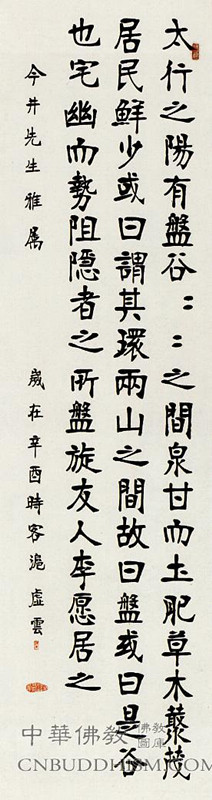 太行之陽有盤谷〻〻之間泉甘而土肥草木藂茂
居民鮮少或曰謂其環兩山之間故曰盤或曰是谷
也宅幽而勢阻隐者之所盤旋友人李愿居之
今井先生雅属
歲在辛酉時客滬 虛雲
中華佛教 佛教圖庫
CNBUDDHISM.COM